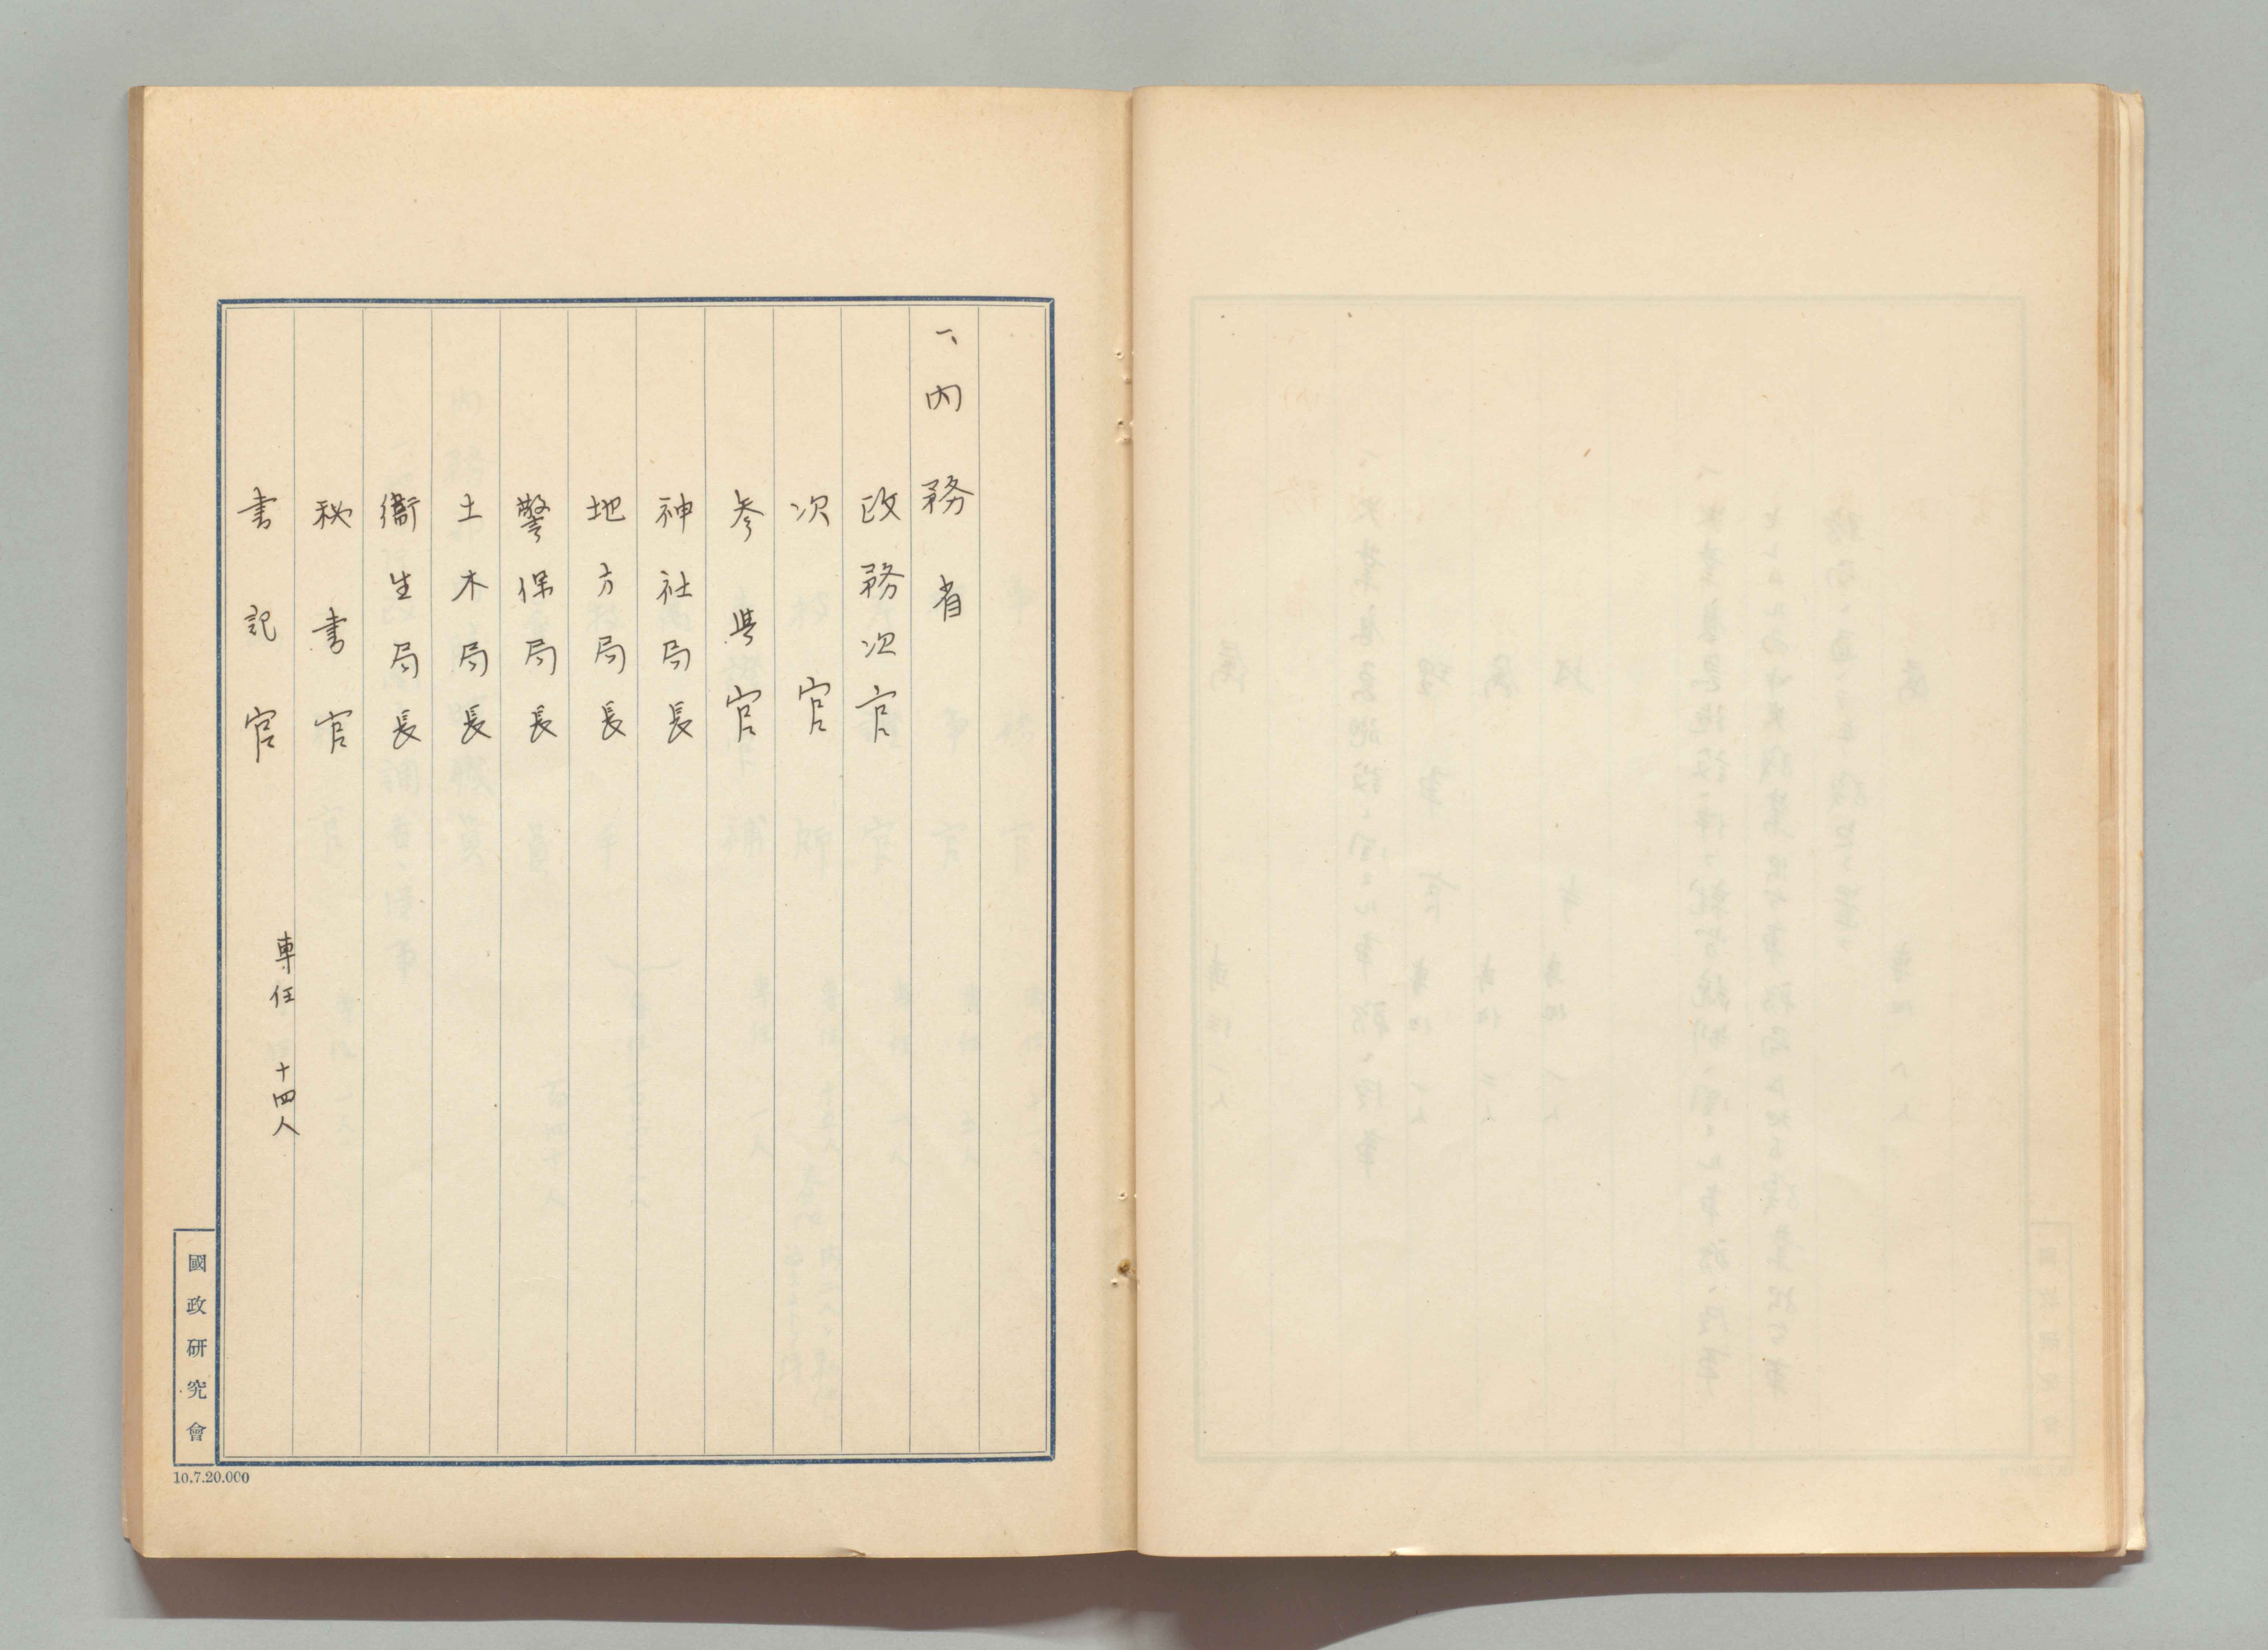 一、内務省
政務次官
次官
参与官
神社局長
地方局長
警保局長
土木局長
衞生局長
秘書官
書記官　専任　十四人
國政研究會
10.7.20.000